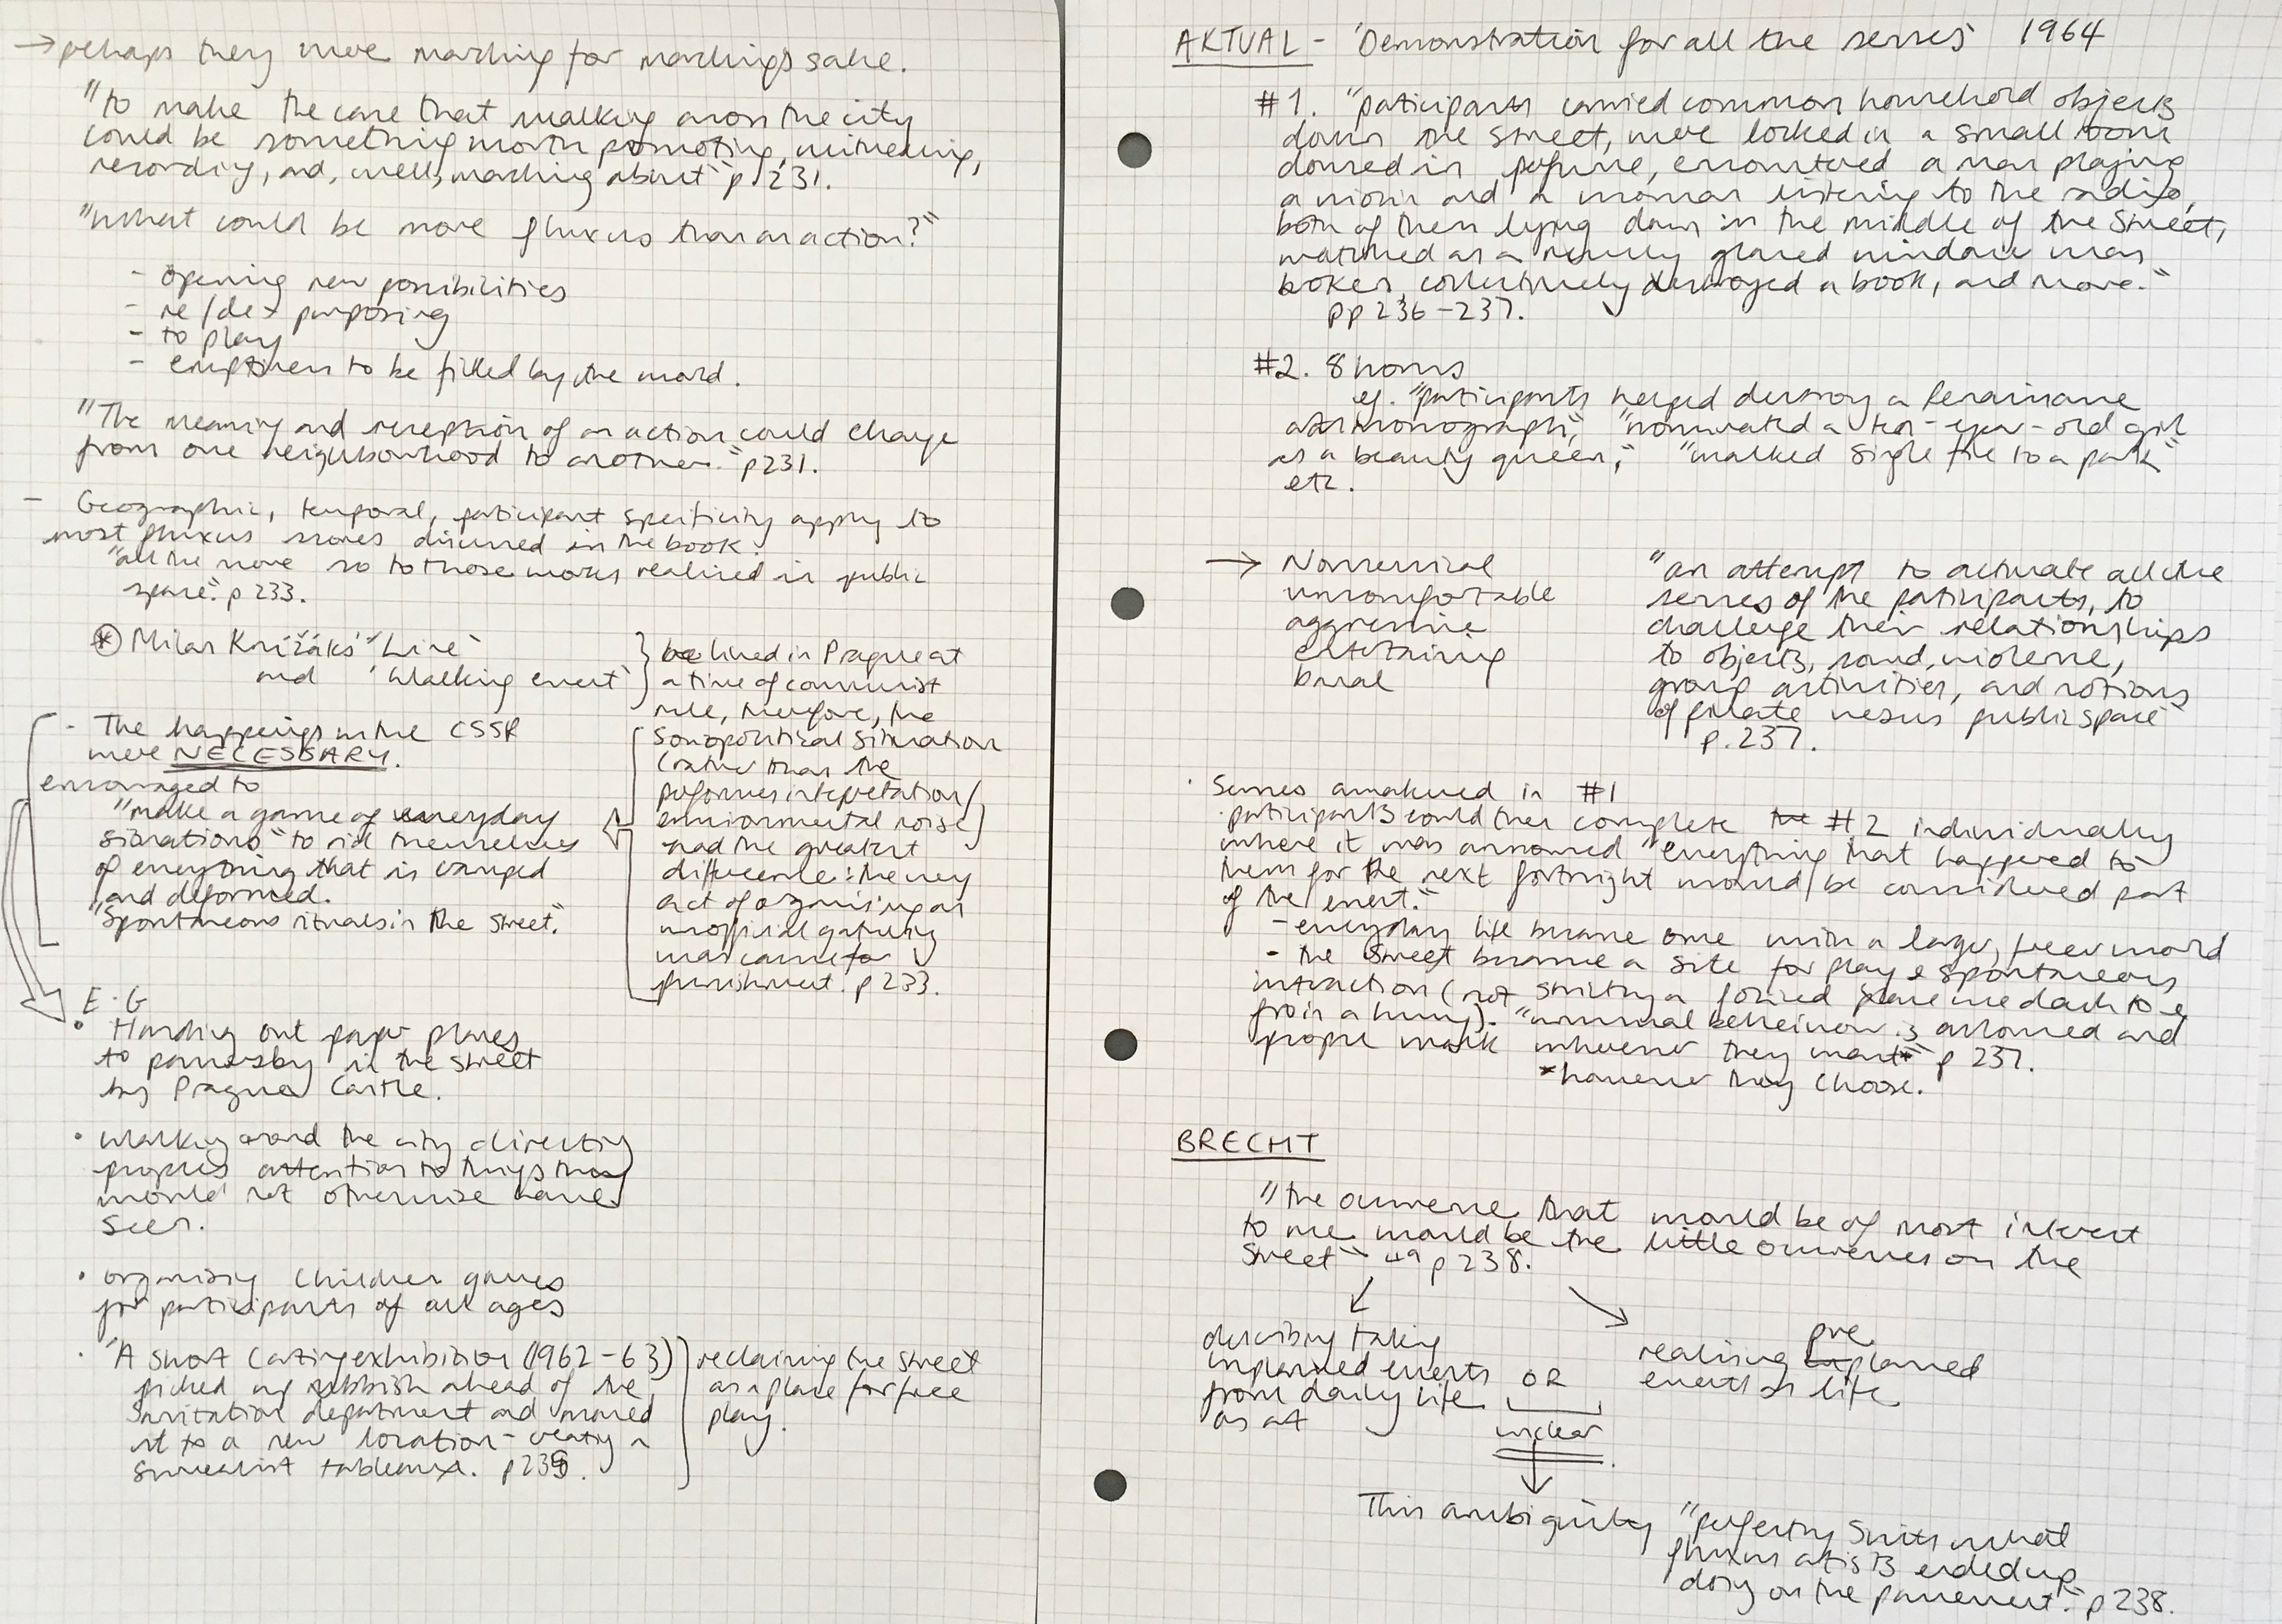 → perhaps they were marching for marching's sake.
"to make the case that walking across the city
could be something worth promoting, witnessing,
recording, and, well, marching about" p 231.
"What could be more fluxus than an action?"
- opening new possibilities
- re/de-purposing
- to play
- emptiness to be filled by the world.
"The meaning and reception of an action could change
from one neighbourhood to another." p231.
- Geographic, temporal, participant specificity apply to
most fluxus scores discussed in the book.
"all the more so to those works realised in public
space." p 233.
* Milan Knížák's 'Line'
and 'Walking event'
he lived in Prague at
a time of communist
rule, therefore, the
sociopolitical situation
(rather than the
performers interpretation/
environmental noise)
had the greatest
difference: the very
act of organising an
unofficial gathering
was cause for
punishment. p 233.
- The happenings in the CSSR
were NECESSARY.
encouraged to
"make a game of everyday
situations" to rid themselves
of everything that is cramped
and deformed.
"spontaneous rituals in the street".
E.G
• Handing out paper planes
to passersby in the street
by Prague Castle.
• Walking around the city directing
peoples attention to things they
would not otherwise have
seen.
• organising children games
for participants of all ages
• 'A Short Carting exhibition (1962-63)
picked up rubbish ahead of the
sanitation department and moved
it to a new location - creating a
surrealist tableaux. p235.
reclaiming the street
as a place for free
play.
AKTUAL - 'Demonstration for all the senses' 1964
#1. "participants carried common household objects
down the street, were locked in a small room
doused in perfume, encountered a man playing
a violin and a woman listening to the radio,
both of them lying down in the middle of the street,
watched as a newly glazed window was
broken, collectively destroyed a book, and more."
pp 236-237.
#2. 8 hours
eg. "participants helped destroy a Renaissance
art monograph", "nominated a ten-year-old girl
as a beauty queen", "walked single file to a park"
etc.
→ Nonsensical
uncomfortable
aggressive
entertaining
banal
"an attempt to activate all the
senses of the participants, to
challenge their relationships
to objects, sound, violence,
group activities, and notions
of private versus public space"
p.237.
• Senses awakened in #1
• participants could then complete the #2 individually
where it was announced "everything that happened to
them for the next fortnight would be considered part
of the event."
- everyday life became one with a larger, freer world
- the street became a site for play & spontaneous
interaction (not strictly a forced place we dash to &
from in a hurry). "unusual behaviour is allowed and
people walk wherever they want*" p 237.
*however they choose.
BRECHT
"the occurrence that would be of most interest
to me would be the little occurrences on the
street" 49 p 238.
describing taking
unplanned events
from daily life
as art
OR
unclear
realising pre planned
events in life
This ambiguity "perfectly suits what
fluxus artists ended up
doing on the pavement." p 238.